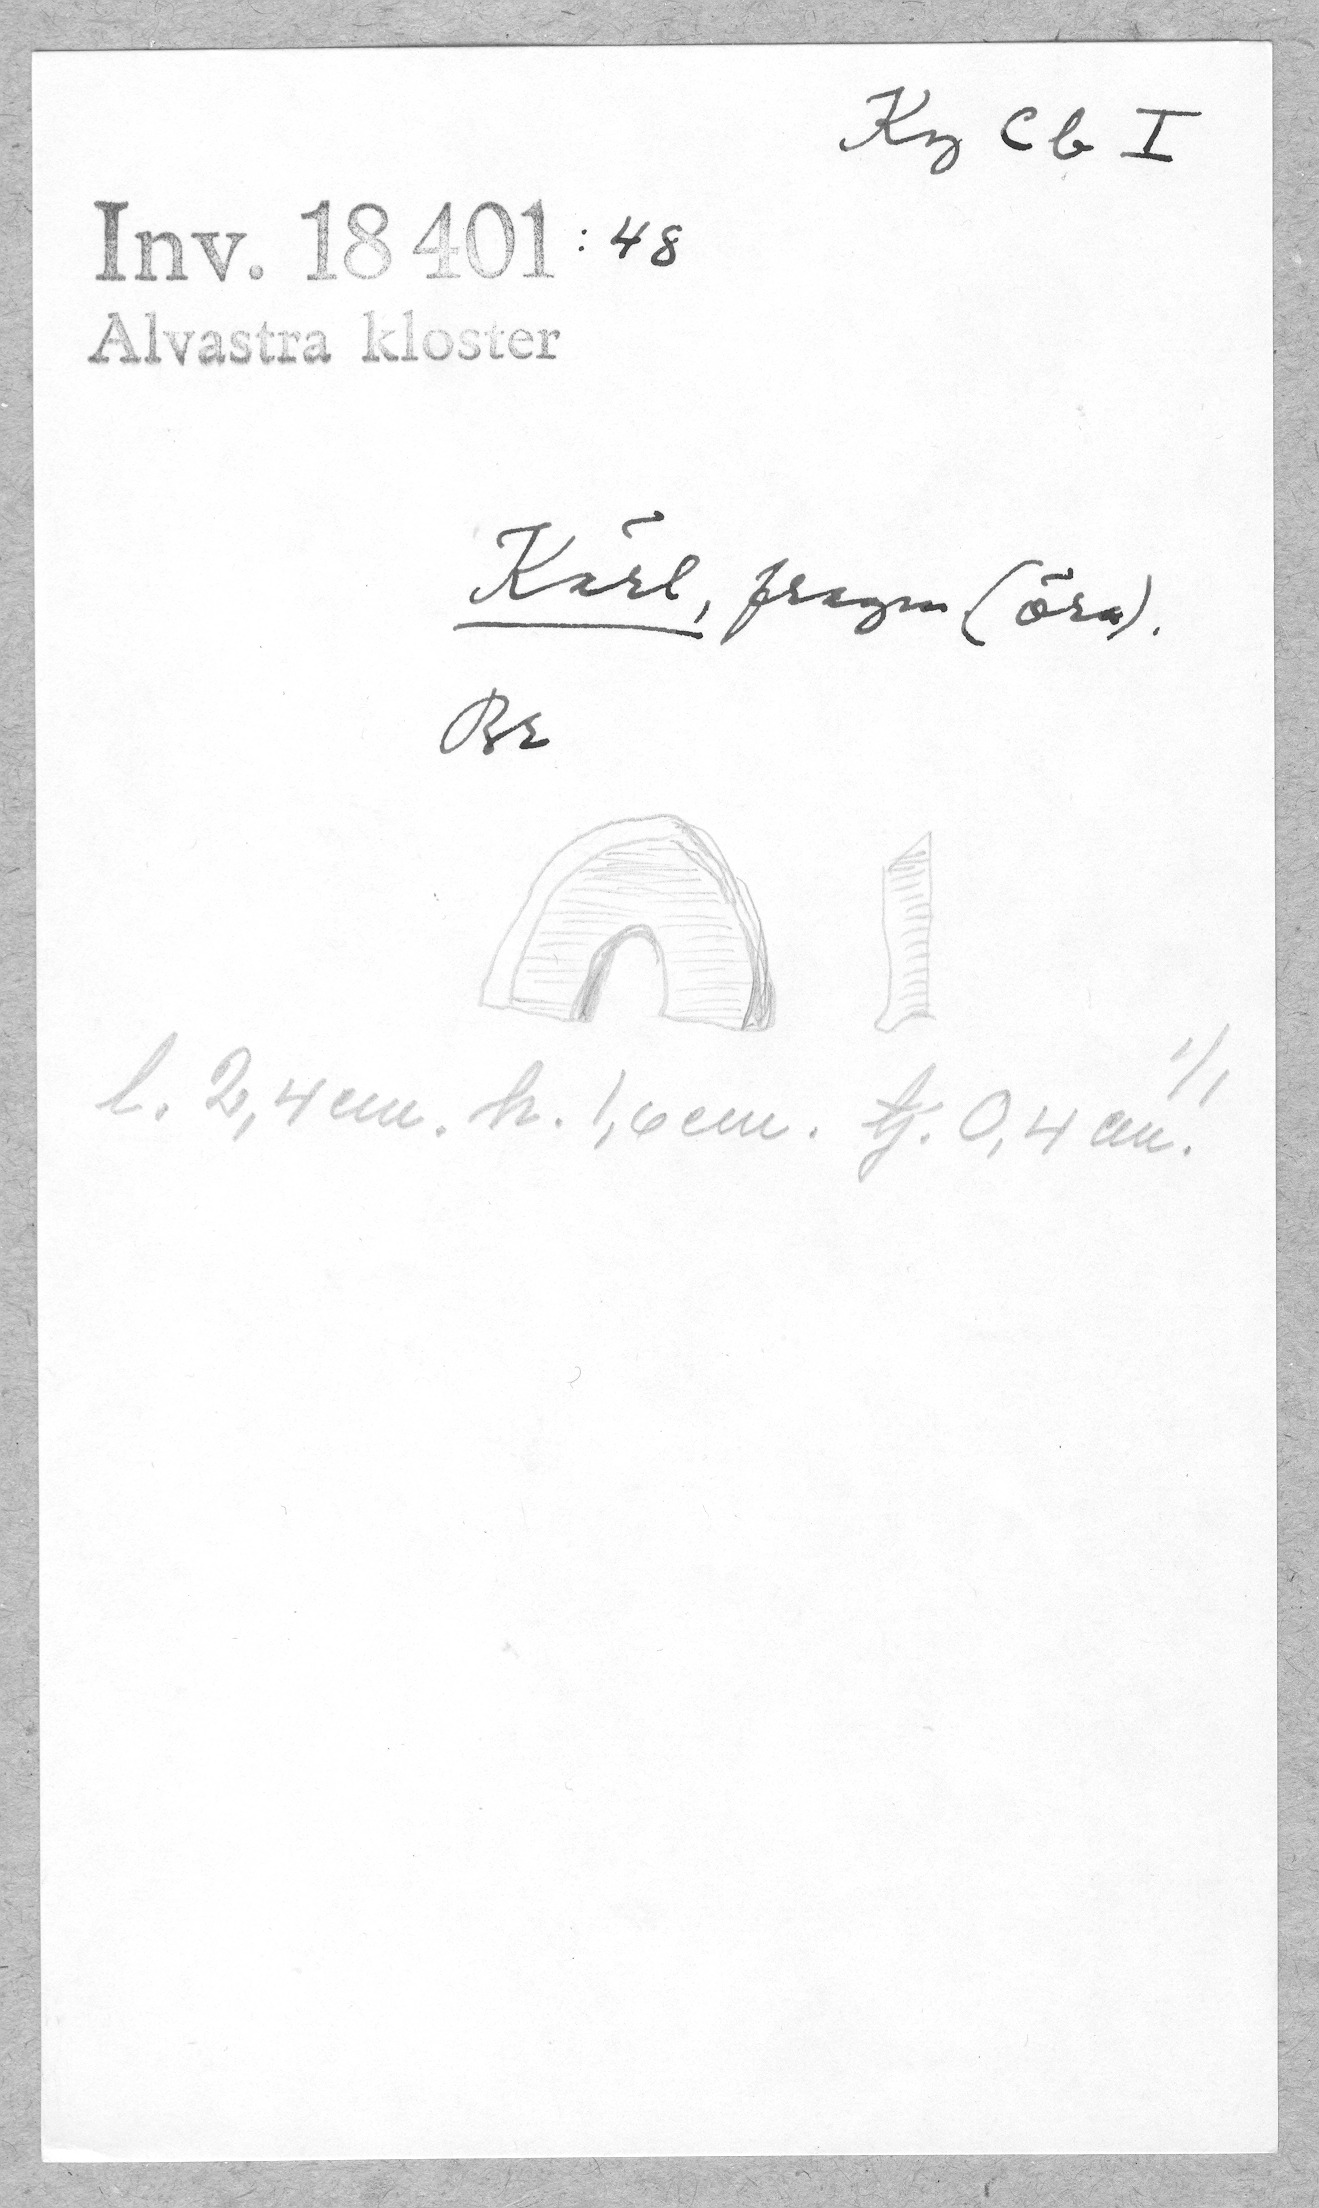 Ky C b I
Inv. 18 401 : 48
Alvastra kloster
Kärl, fragm (öra).
Br
1/1
l. 2,4 cm. h. 1,6 cm. tj. 0,4 cm.